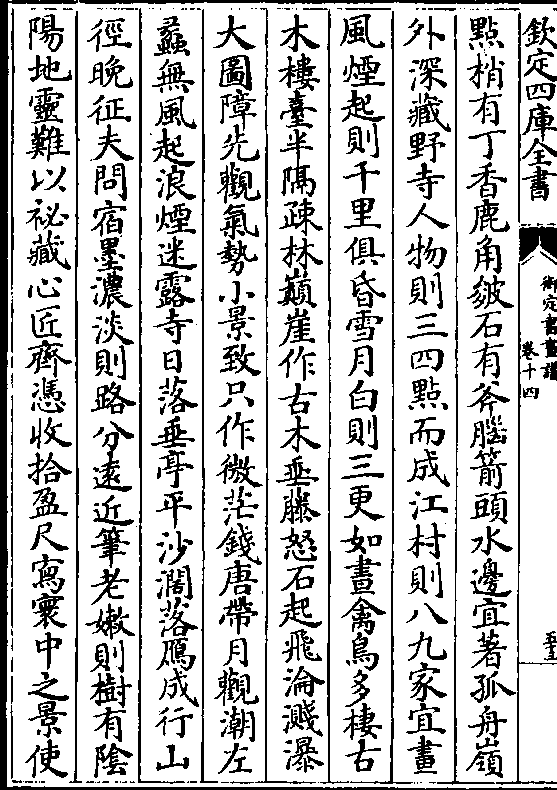 欽定四庫全書
御定書畫譜
卷十四
點梢有丁香鹿角皴石有斧腦箭頭水邊宜著孤舟嶺
外深藏野寺人物則三四點而成江村則八九家宜畫
風煙起則千里俱昏雪月白則三更如晝禽鳥多棲古
木樓臺半隔疎林巔崖作古木垂藤怒石起飛淪濺瀑
大圖障先觀氣勢小景致只作微茫錢唐帶月觀潮左
蠡無風起浪煙迷露寺日落垂亭平沙濶落鴈成行山
徑晚征夫問宿墨濃淡則路分遠近筆老嫩則樹有陰
陽地靈難以祕藏心匠齊憑收拾盈尺寫寰中之景使